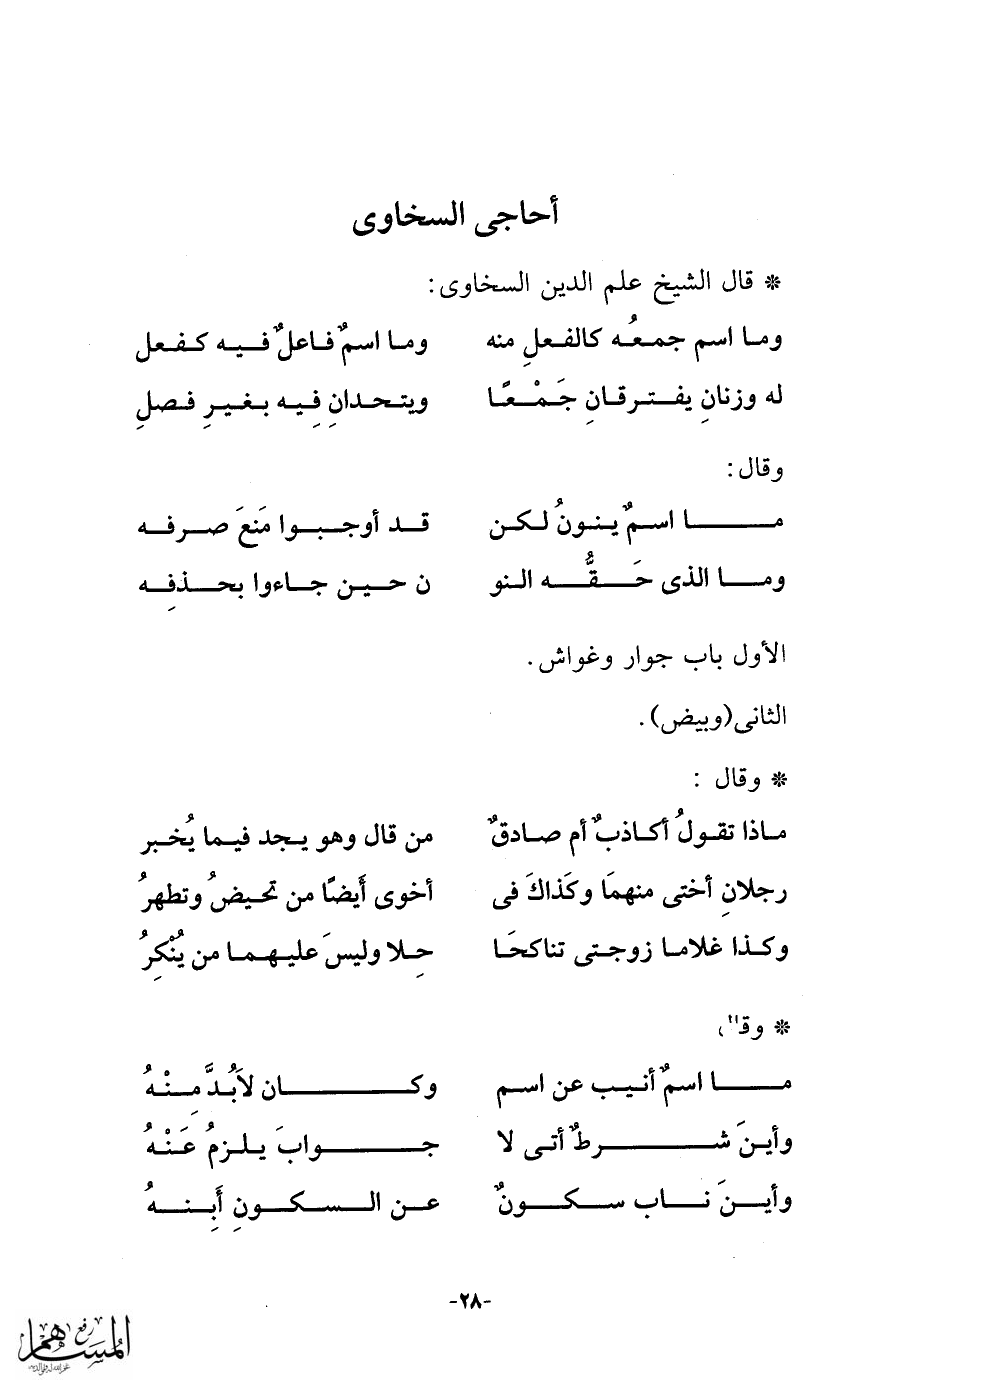 أحاجى السخاوى
* قال الشيخ علم الدين السخاوى:
وما اسم جمعُه كالفعلِ منه وما اسمٌ فاعلٌ فيه كفعل
له وزنانِ يفترقانِ جَمْعًا ويتحدانِ فِيه بغيرِ فصلِ
وقال:
ما اسمٌ ينونُ لكن قد أوجبوا مَنعَ صرفه
وما الذى حَقُّه النو ن حين جاءوا بحذفِه
الأول باب جوار وغواش.
الثانى(وبيض).
* وقال :
ماذا تقولُ أكاذبٌ أم صادقٌ من قال وهو يجد فيما يُخبر
رجلانِ أختى منهمَا وكَذاكَ فى أخوى أَيضًا من تحيضُ وتطهرُ
وكذا غلاما زوجتى تناكحَا حِلا وليسَ عليهما من يُنْكِرُ
* وقال
ما اسمٌ أنيب عن اسم وكان لاَبُدَّ مِنْهُ
وأينَ شرطٌ أتى لا جوابَ يلزمُ عَنْهُ
وأينَ ناب سكونٌ عن السكونِ أَبِنهُ
-٢٨-
رفع
المساهم